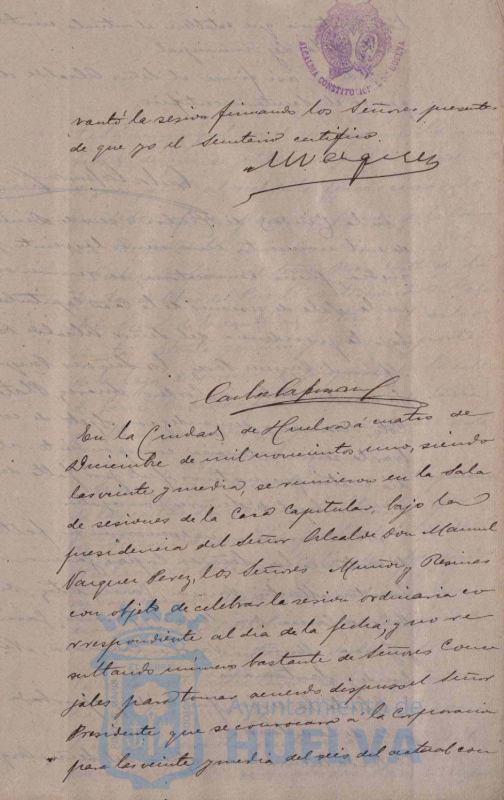 ALCALDIA CONSTITUCIONAL DE HUELVA
vantó la sesion firmando los Señores presentes
de que yo el Secretario certifico.
M Vazquez
Carlos
En la Ciudad de Huelva á cuatro de
Diciembre de mil novecientos uno, siendo
las veinte y media, se reunieron en la Sala
de sesiones de la Casa Capitular, bajo la
presidencia del Señor Alcalde Don Manuel
Vazquez Perez, los Señores Muñoz y Resinas
con objeto de celebrar la sesion ordinaria co
rrespondiente al dia de la fecha; y no re
sultando número bastante de Señores Conce
jales para tomar acuerdo dispuso el Señor
Presidente que se convocara a la Corporacion
para las veinte y media del seis del actual con
Ayuntamiento de
HUELVA